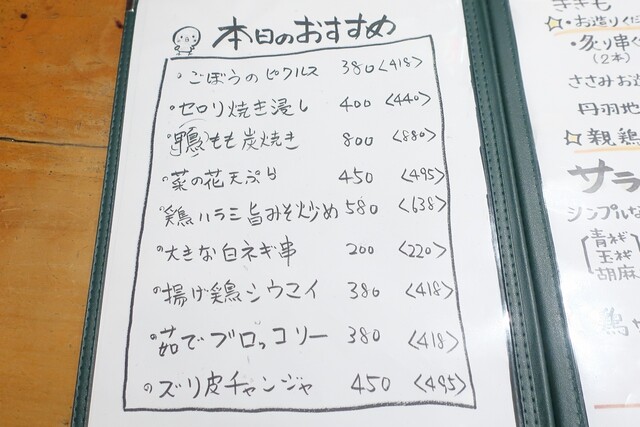 本日のおすすめ
・ごぼうのピクルス 380 <418>
・セロリ焼き浸し 400 <440>
・鴨もも炭焼き 800 <880>
・菜の花天ぷら 450 <495>
・鶏ハラミ旨みそ炒め 580 <638>
・大きな白ネギ串 200 <220>
・揚げ鶏シウマイ 380 <418>
・茹でブロッコリー 380 <418>
・ズリ皮チャンジャ 450 <495>
ささみお造
丹羽地
☆親鶏
サラ
シンプルな
青柠
玉柠
胡麻
鶏
☆・お造りくだ
・炙り串
(2本)